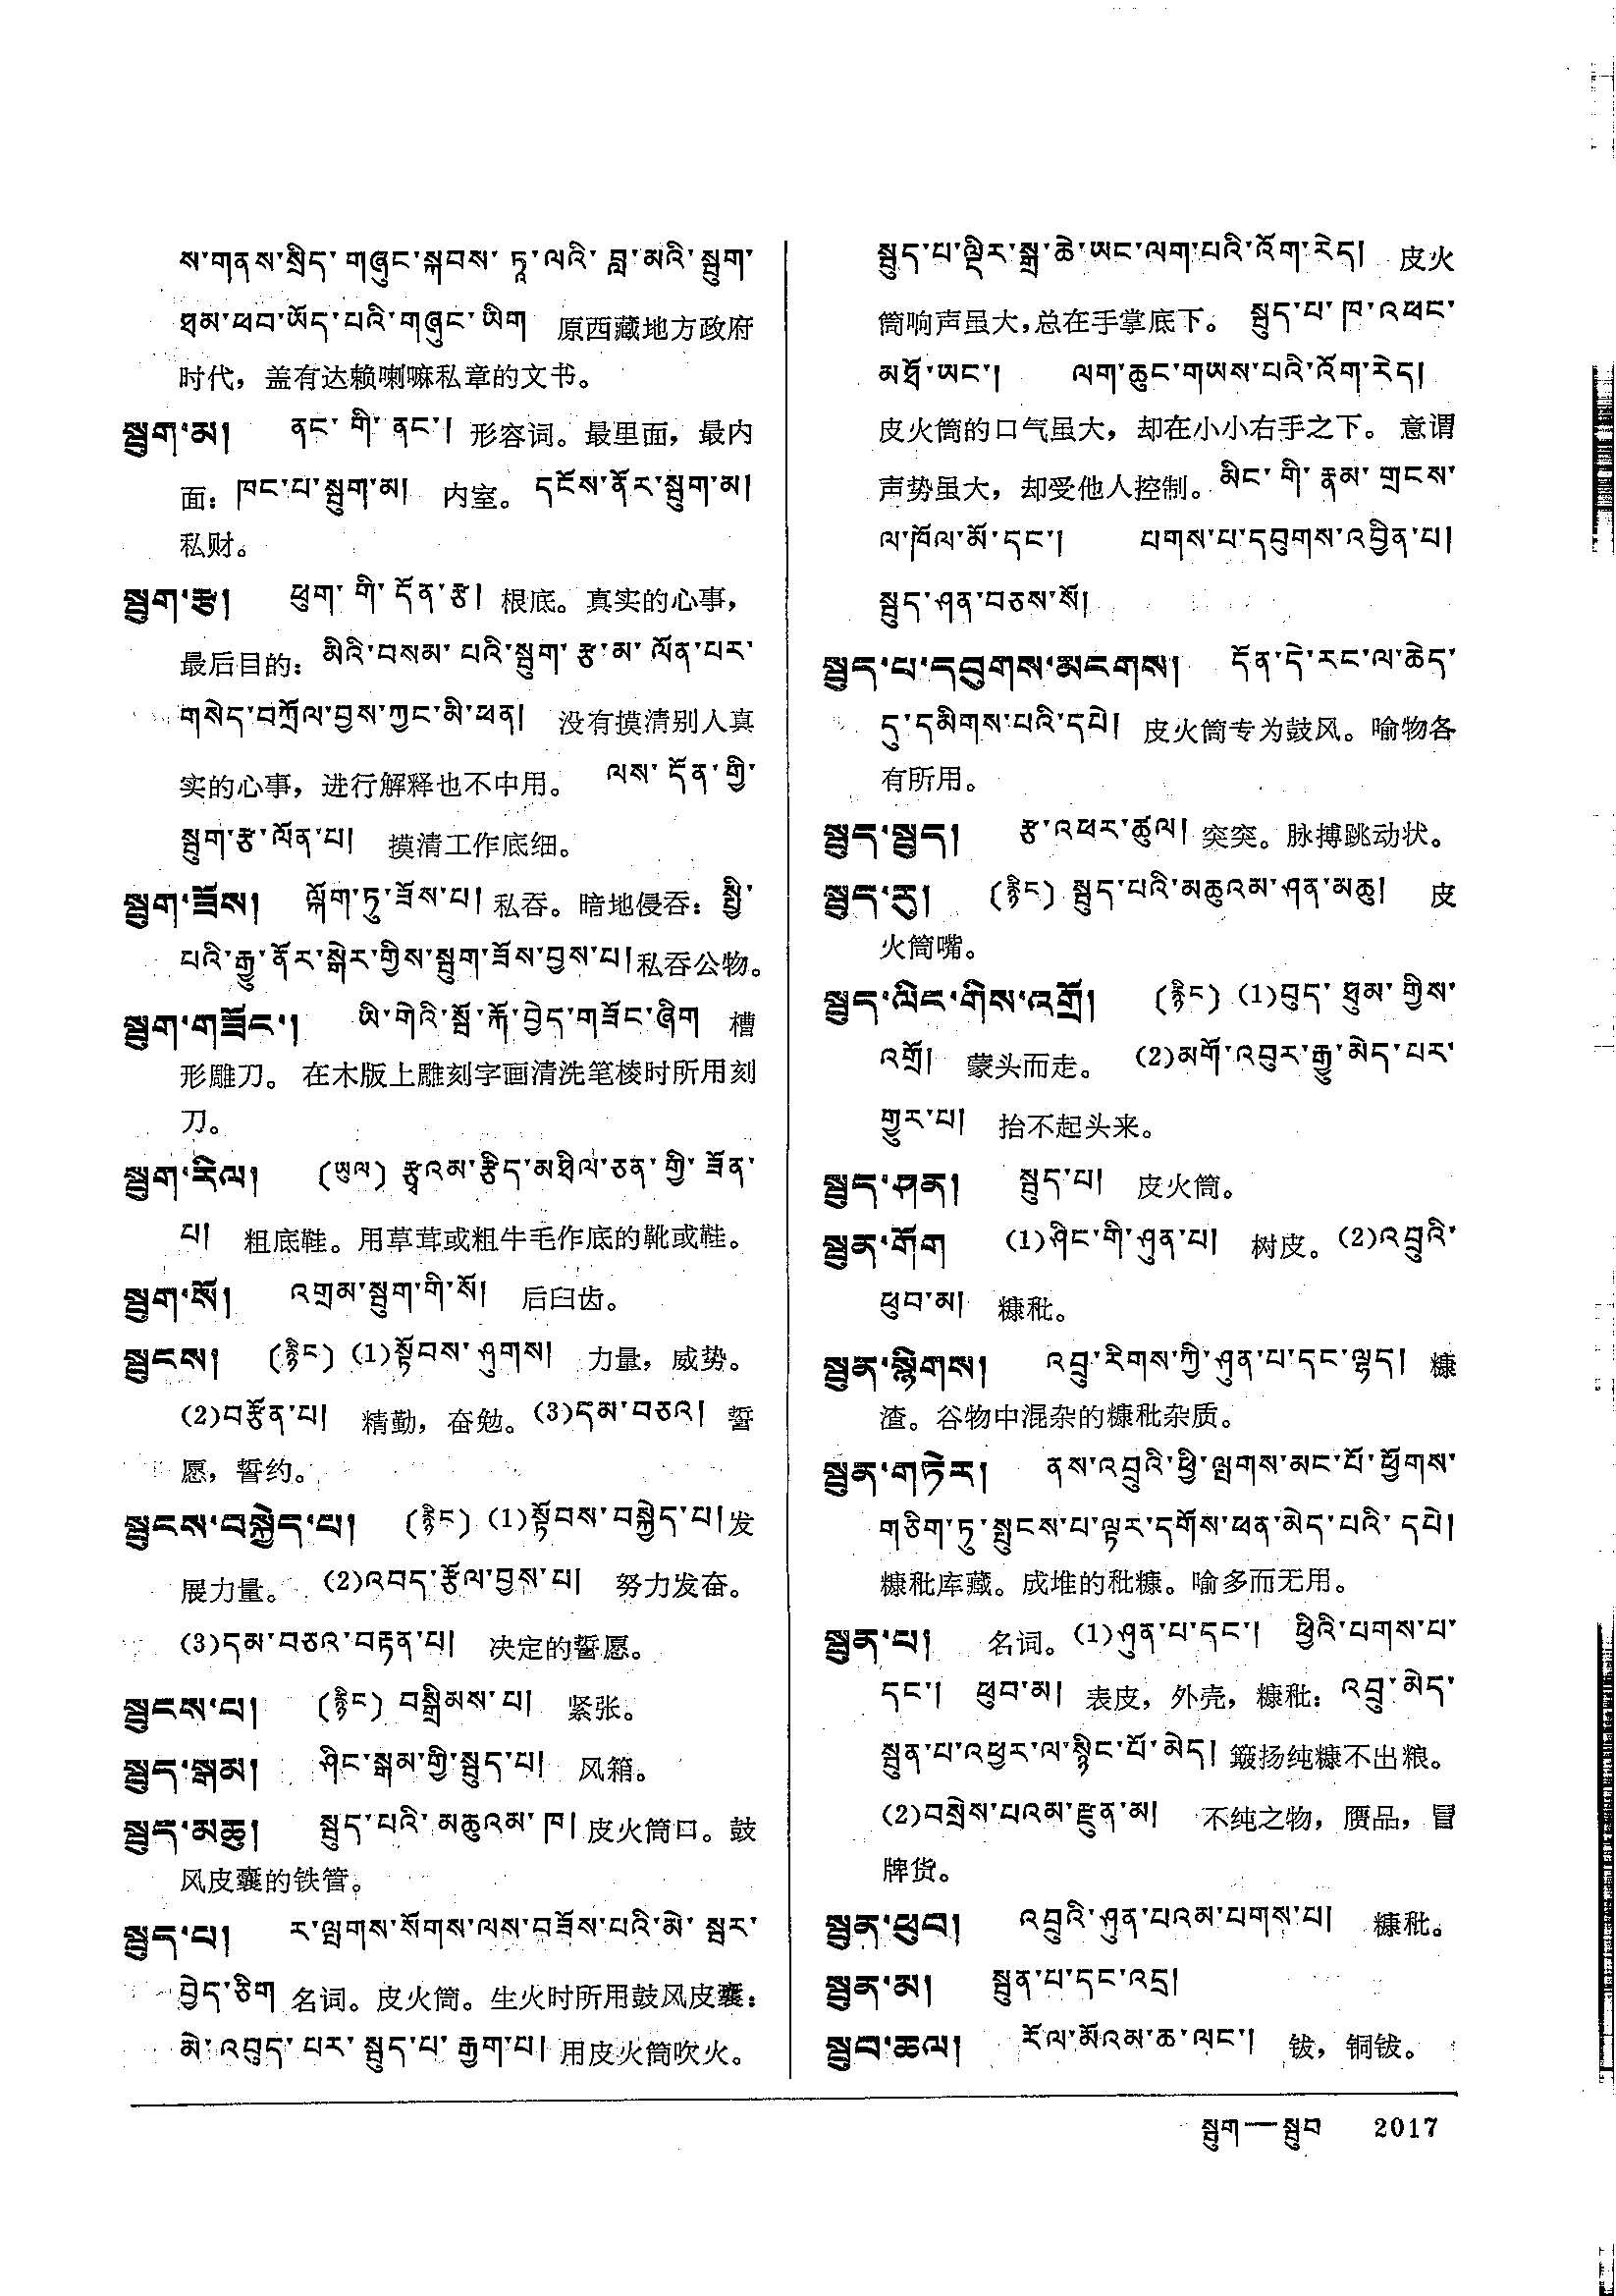 ས་གནས་སྲིད་གཞུང་སྐབས་ཏཱ་ལའི་བླ་མའི་སྦུག་
ཐམ་ཕབ་ཡོད་པའི་གཞུང་ཡིག 原西藏地方政府
时代，盖有达赖喇嘛私章的文书。
སྦུག་མ། ནང་གི་ནང་། 形容词。最里面，最内
面：ཁང་པ་སྦུག་མ། 内室。དངོས་ནོར་སྦུག་མ།
私财。
སྦུག་རྩ། ཕུག་གི་དོན་རྩ། 根底。真实的心事，
最后目的：མིའི་བསམ་པའི་སྦུག་རྩ་མ་ལོན་པར་
གསེད་བཀྲོལ་བྱས་ཀྱང་མི་ཕན། 没有摸清别人真
实的心事，进行解释也不中用。 ལས་དོན་གྱི་
སྦུག་རྩ་ལོན་པ། 摸清工作底细。
སྦུག་ཟོས། ལྐོག་ཏུ་ཟོས་པ། 私吞。暗地侵吞：སྤྱི་
པའི་རྒྱུ་ནོར་སྒེར་གྱིས་སྦུག་ཟོས་བྱས་པ། 私吞公物。
སྦུག་གཟོང་། ཡི་གེའི་སྤོ་རྐོ་བྱེད་གཟོང་ཞིག 槽
形雕刀。在木版上雕刻字画清洗笔棱时所用刻
刀。
སྦུག་རིལ། (ཡུལ) རྩྭའམ་རྩིད་མཐིལ་ཅན་གྱི་ཟོན་
པ། 粗底鞋。用草茸或粗牛毛作底的靴或鞋。
སྦུག་སོ། འགྲམ་སྦུག་གི་སོ། 后臼齿。
སྦུངས། (རྙིང) (1)སྟོབས་ཤུགས། 力量，威势。
(2)བརྩོན་པ། 精勤，奋勉。(3)དམ་བཅའ། 誓
愿，誓约。
སྦུངས་བསྐྱེད་པ། (རྙིང) (1)སྟོབས་བསྐྱེད་པ། 发
展力量。 (2)འབད་རྩོལ་བྱས་པ། 努力发奋。
(3)དམ་བཅའ་བརྟན་པ། 决定的誓愿。
སྦུངས་པ། (རྙིང) བསྒྲིམས་པ། 紧张。
སྦུད་སྒམ། ཤིང་སྒམ་གྱི་སྦུད་པ། 风箱。
སྦུད་མཆུ། སྦུད་པའི་མཆུའམ་ཁ། 皮火筒口。鼓
风皮囊的铁管。
སྦུད་པ། ར་ལྤགས་སོགས་ལས་བཟོས་པའི་མེ་སྦར་
བྱེད་ཅིག 名词。皮火筒。生火时所用鼓风皮囊：
མེ་འབུད་པར་སྦུད་པ་རྒྱག་པ། 用皮火筒吹火。
སྦུད་པ་ལྡིར་སྒྲ་ཆེ་ཡང་ལག་པའི་འོག་རེད། 皮火
筒响声虽大，总在手掌底下。 སྦུད་པ་ཁ་འཕང་
མཐོ་ཡང་། ལག་ཆུང་གཡས་པའི་འོག་རེད།
皮火筒的口气虽大，却在小小右手之下。意谓
声势虽大，却受他人控制。མིང་གི་རྣམ་གྲངས་
ལ་ཁོལ་མོ་དང་། པགས་པ་དབུགས་འབྱིན་པ།
སྦུད་ཤན་བཅས་སོ།
སྦུད་པ་དབུགས་མངགས། དོན་དེ་རང་ལ་ཆེད་
དུ་དམིགས་པའི་དཔེ། 皮火筒专为鼓风。喻物各
有所用。
སྦུད་སྦུད། རྩ་འཕར་ཚུལ། 突突。脉搏跳动状。
སྦུད་རུ། (རྙིང) སྦུད་པའི་མཆུའམ་ཤན་མཆུ། 皮
火筒嘴。
སྦུད་ལིང་གིས་འགྲོ། (རྙིང) (1)བུད་ཐུམ་གྱིས་
འགྲོ། 蒙头而走。 (2)མགོ་འབུར་རྒྱུ་མེད་པར་
གྱུར་པ། 抬不起头来。
སྦུད་ཤན། སྦུད་པ། 皮火筒。
སྦུན་གོག (1)ཤིང་གི་ཤུན་པ། 树皮。(2)འབྲུའི་
ཕུབ་མ། 糠秕。
སྦུན་སྙིགས། འབྲུ་རིགས་ཀྱི་ཤུན་པ་དང་ལྷད། 糠
渣。谷物中混杂的糠秕杂质。
སྦུན་གཏེར། ནས་འབྲུའི་ཕྱི་ལྤགས་མང་པོ་ཕྱོགས་
གཅིག་ཏུ་སྤུངས་པ་ལྟར་དགོས་ཕན་མེད་པའི་དཔེ།
糠秕库藏。成堆的秕糠。喻多而无用。
སྦུན་པ། 名词。(1)ཤུན་པ་དང་། ཕྱིའི་པགས་པ་
དང་། ཕུབ་མ། 表皮，外壳，糠秕：འབྲུ་མེད་
སྦུན་པ་འཕྱར་ལ་སྙིང་པོ་མེད། 簸扬纯糠不出粮。
(2)བསྲེས་པའམ་རྫུན་མ། 不纯之物，赝品，冒
牌货。
སྦུན་ཕུབ། འབྲུའི་ཤུན་པའམ་པགས་པ། 糠秕。
སྦུན་མ། སྦུན་པ་དང་འདྲ།
སྦུབ་ཆལ། རོལ་མོའམ་ཆ་ལང་། 钹，铜钹。
སྦུག—སྦུབ 2017